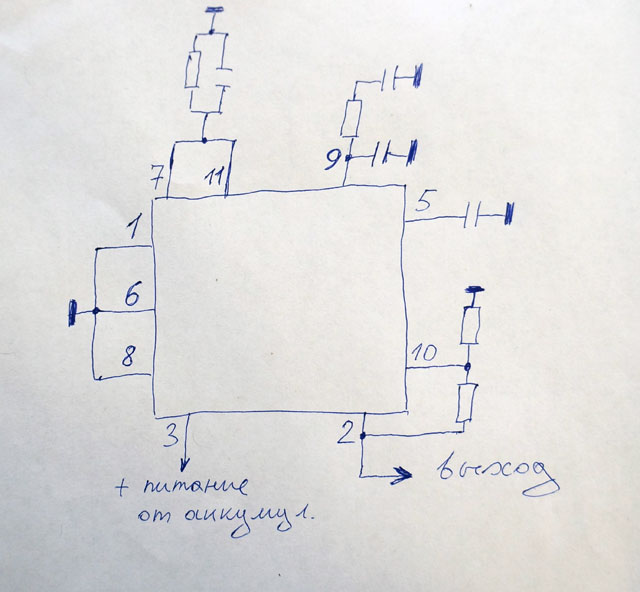 7 11
9
5
1
6
8
10
3 2
+ питание
от аккумул.
выход